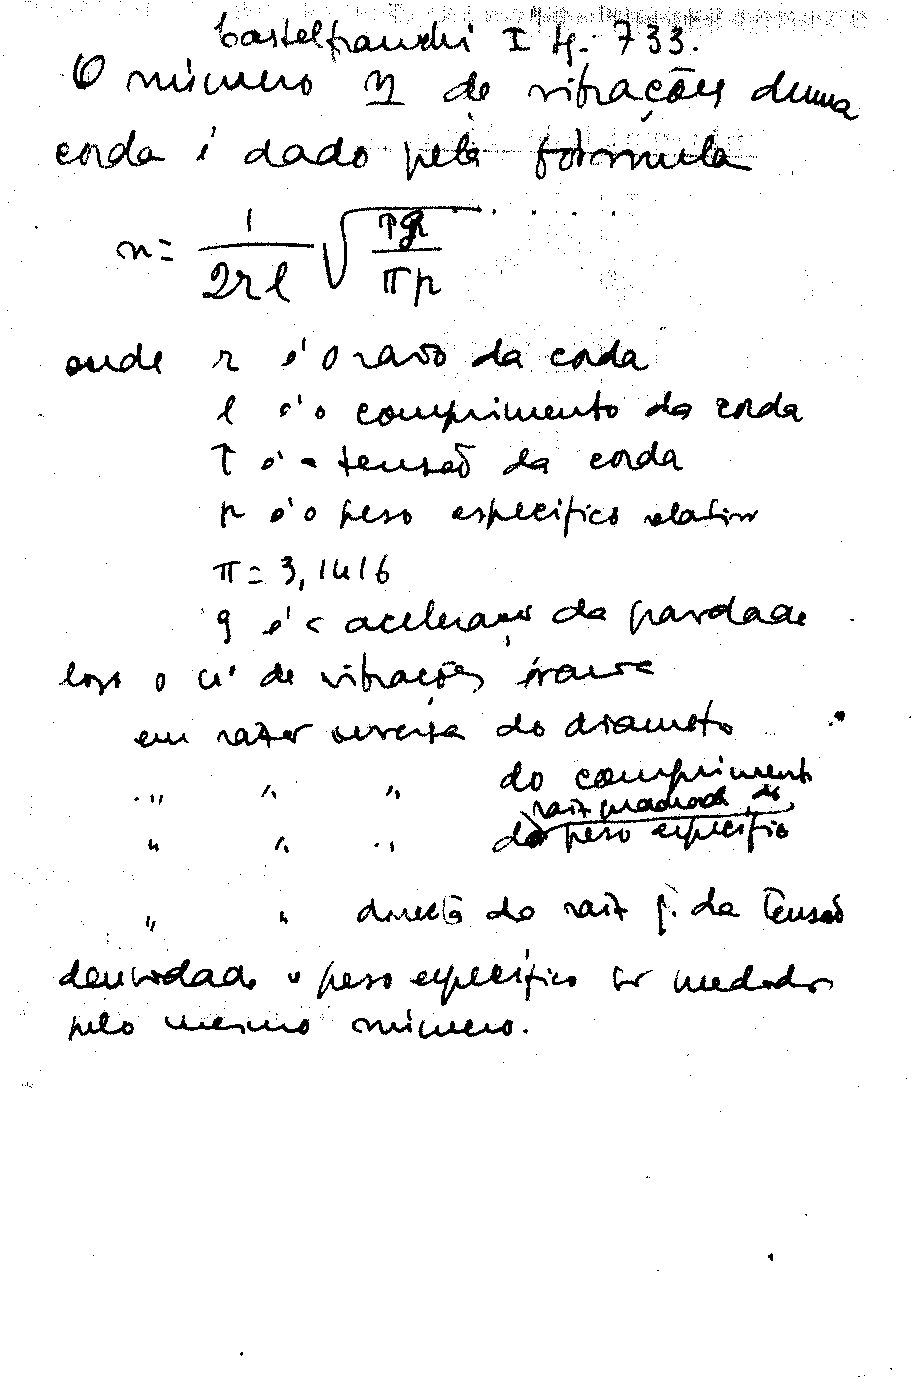 Castelfranchi I pg. 733.
O número n de vibrações duma
corda é dado pela fórmula
n = 1/2rl √Tg/πp
onde r é o raio da corda
l é o comprimento da corda
T é a tensão da corda
p é o peso específico relativo
π = 3,1416
g é a aceleração da gravidade
logo o nº de vibrações
em razão inversa do diametro
" " " do comprimento
raiz quadrada de
" " " do peso específico
" " directa da raiz q. da Tensão
densidade e peso específico são medidos
pelo mesmo número.